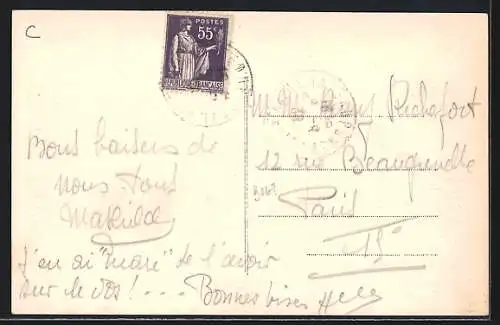 C
POSTES
55c
REPUBLIQUE FRANÇAISE
Bons baisers de
nous tous
Mathilde
J'en ai "marre" de l'avoir
sur le dos ! . . . Bonnes bises
M. Mme Rochefort
12 rue
Paris